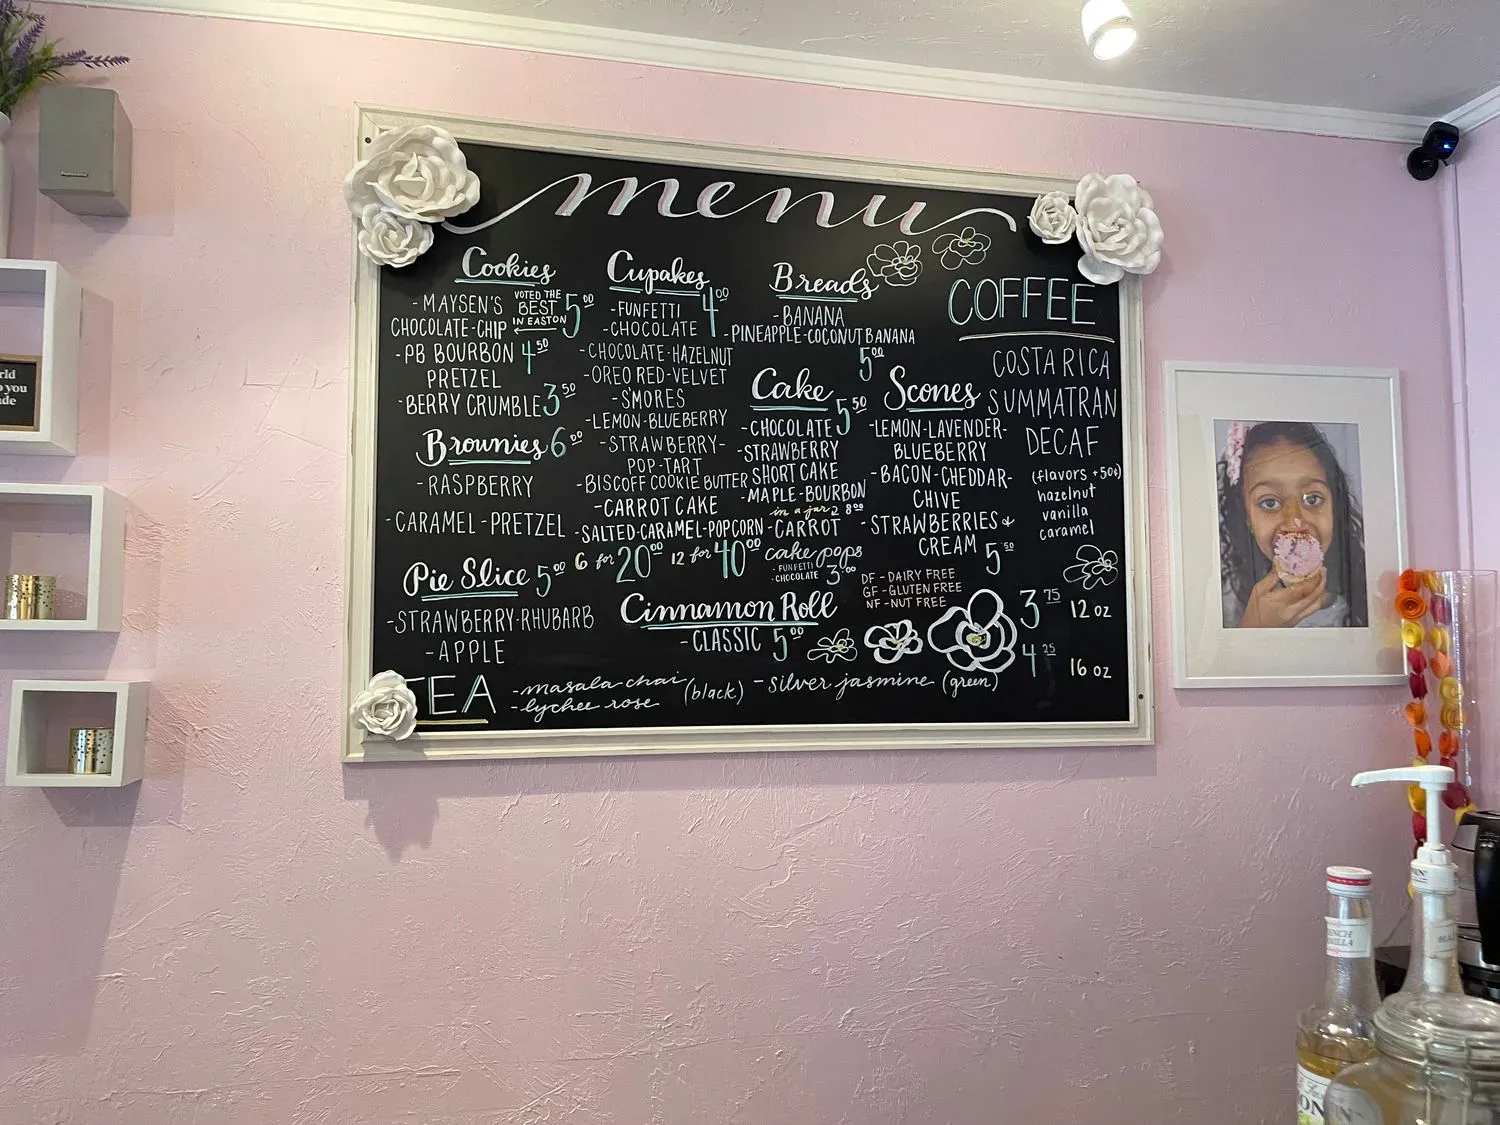 menu
Cookies
- MAYSEN'S
CHOCOLATE-CHIP
VOTED THE
BEST
IN EASTON
5 00
- PB BOURBON 4 50
PRETZEL
- BERRY CRUMBLE 3 50
Brownies 6 00
- RASPBERRY
- CARAMEL-PRETZEL
Pie Slice 5 00
- STRAWBERRY-RHUBARB
- APPLE
Cupakes
4 00
- FUNFETTI
- CHOCOLATE
- CHOCOLATE-HAZELNUT
- OREO RED-VELVET
- S'MORES
- LEMON-BLUEBERRY
- STRAWBERRY-
POP-TART
- BISCOFF COOKIE BUTTER
- CARROT CAKE
- SALTED-CARAMEL-POPCORN
6 for 20 00 12 for 40 00
Breads
- BANANA
- PINEAPPLE-COCONUT BANANA
5 00
Cake 5 50
- CHOCOLATE
- STRAWBERRY
SHORTCAKE
- MAPLE-BOURBON
in a jar 8 00
- CARROT
cake pops
- FUNFETTI
- CHOCOLATE
3 00
Cinnamon Roll
- CLASSIC 5 00
Scones
- LEMON-LAVENDER-
BLUEBERRY
- BACON-CHEDDAR-
CHIVE
- STRAWBERRIES &
CREAM 5 50
DF - DAIRY FREE
GF - GLUTEN FREE
NF - NUT FREE
COFFEE
COSTA RICA
SUMMATRAN
DECAF
(flavors +50¢)
hazelnut
vanilla
caramel
3 75 12 oz
4 25 16 oz
TEA
- masala chai
- lychee rose
(black)
- silver jasmine (green)
Panasonic